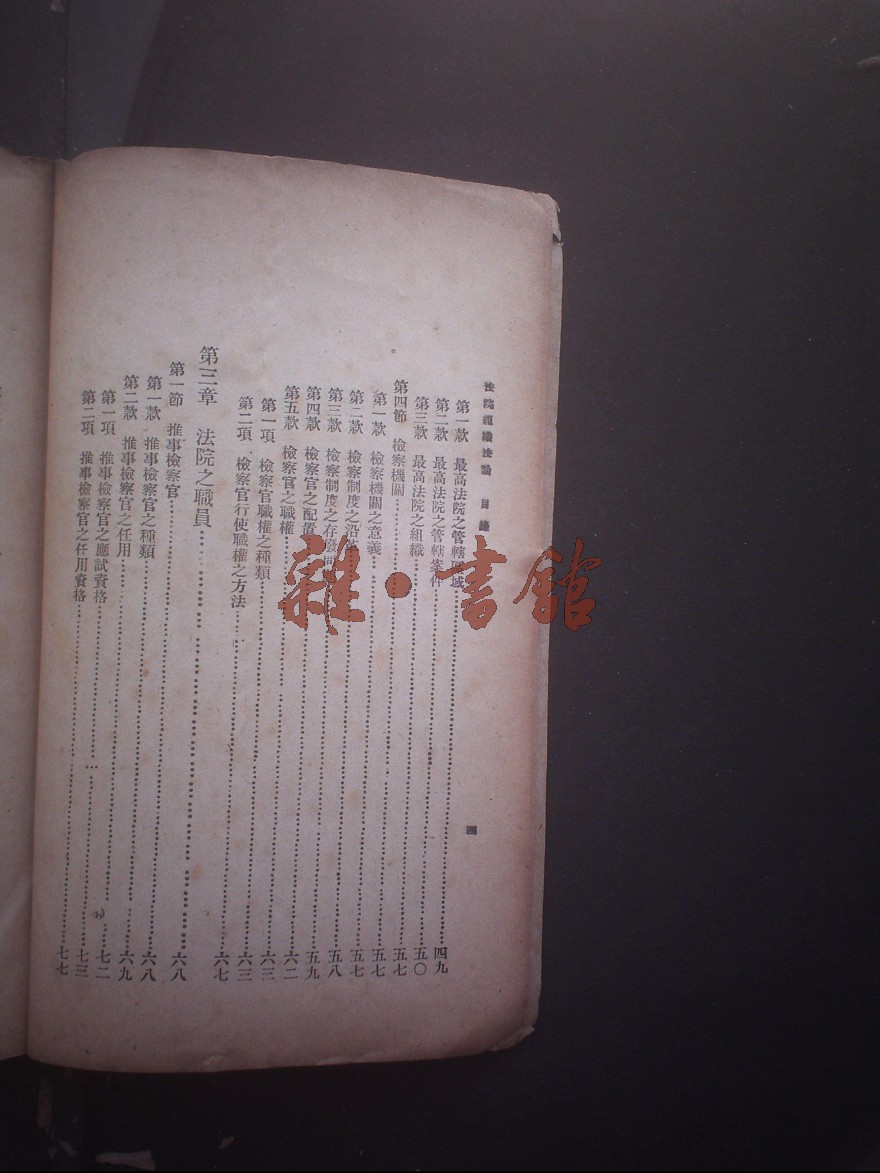 法院組織法論 目錄
第一款 最高法院之管轄區域……四九
第二款 最高法院之管轄案件……五〇
第三款 最高法院之組織……五七
第四節 檢察機關……五七
第一款 檢察機關之意義……五七
第二款 檢察制度之沿革……五八
第三款 檢察制度之存廢問……五九
第四款 檢察官之配置……六二
第五款 檢察官之職權……六三
第一項 檢察官職權之種類……六三
第二項 檢察官行使職權之方法……六七
第三章 法院之職員……六八
第一節 推事檢察官……六八
第一款 推事檢察官之種類……六九
第二款 推事檢察官之任用……七二
第一項 推事檢察官之應試資格……七三
第二項 推事檢察官之任用資格……七七
四
雜·書館